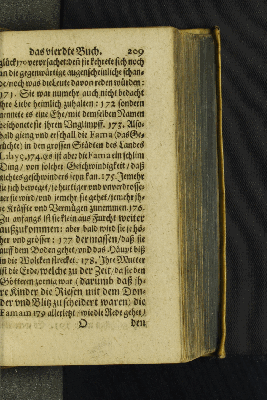 das vierdte Buch. 209
glück 170 verursachet den sie kehrete sich noch
an die gegenwärtige augenscheinliche schan-
de / noch was die Leute davon reden würden:
171. Sie war numehr auch nicht bedacht
ihre Liebe heimlich zuhalten: 172 sondern
nennete es eine Ehe / mit demselben Namen
beschonete sie ihren Unglimpff. 173. Also-
bald gieng und erschall die Fama (das Ge-
rüchte) in den grossen Städten des Landes
Libye, 174. es ist aber die Fama ein solchn
Ding / von solcher Geschwindigkeit / daß
nichtes geschwinders seyn kan. 175. Je mehr
sie sich beweget / je hurtiger und unverdrosse-
ner sie wird / und jemehr sie gehet / jemehr ih-
re Kräffte und Vermögen zunimmen. 176.
Zu anfangs ist sie klein aus Furcht weiter
auszukommen: aber bald wird sie je hö-
her und grösser: 177 dermassen / daß sie
auff dem Boden gehet / und das Häupt biß
in die Wolcken strecket. 178. Ihre Mutter
ist die Erde / welche zu der Zeit / da sie den
Göttern zornig war (darumb daß ih-
re Kinder die Riesen mit dem Don-
der und Blitz zuscheidert waren) die
Famam 179 allerletzt / wie die Rede gehet /
O den